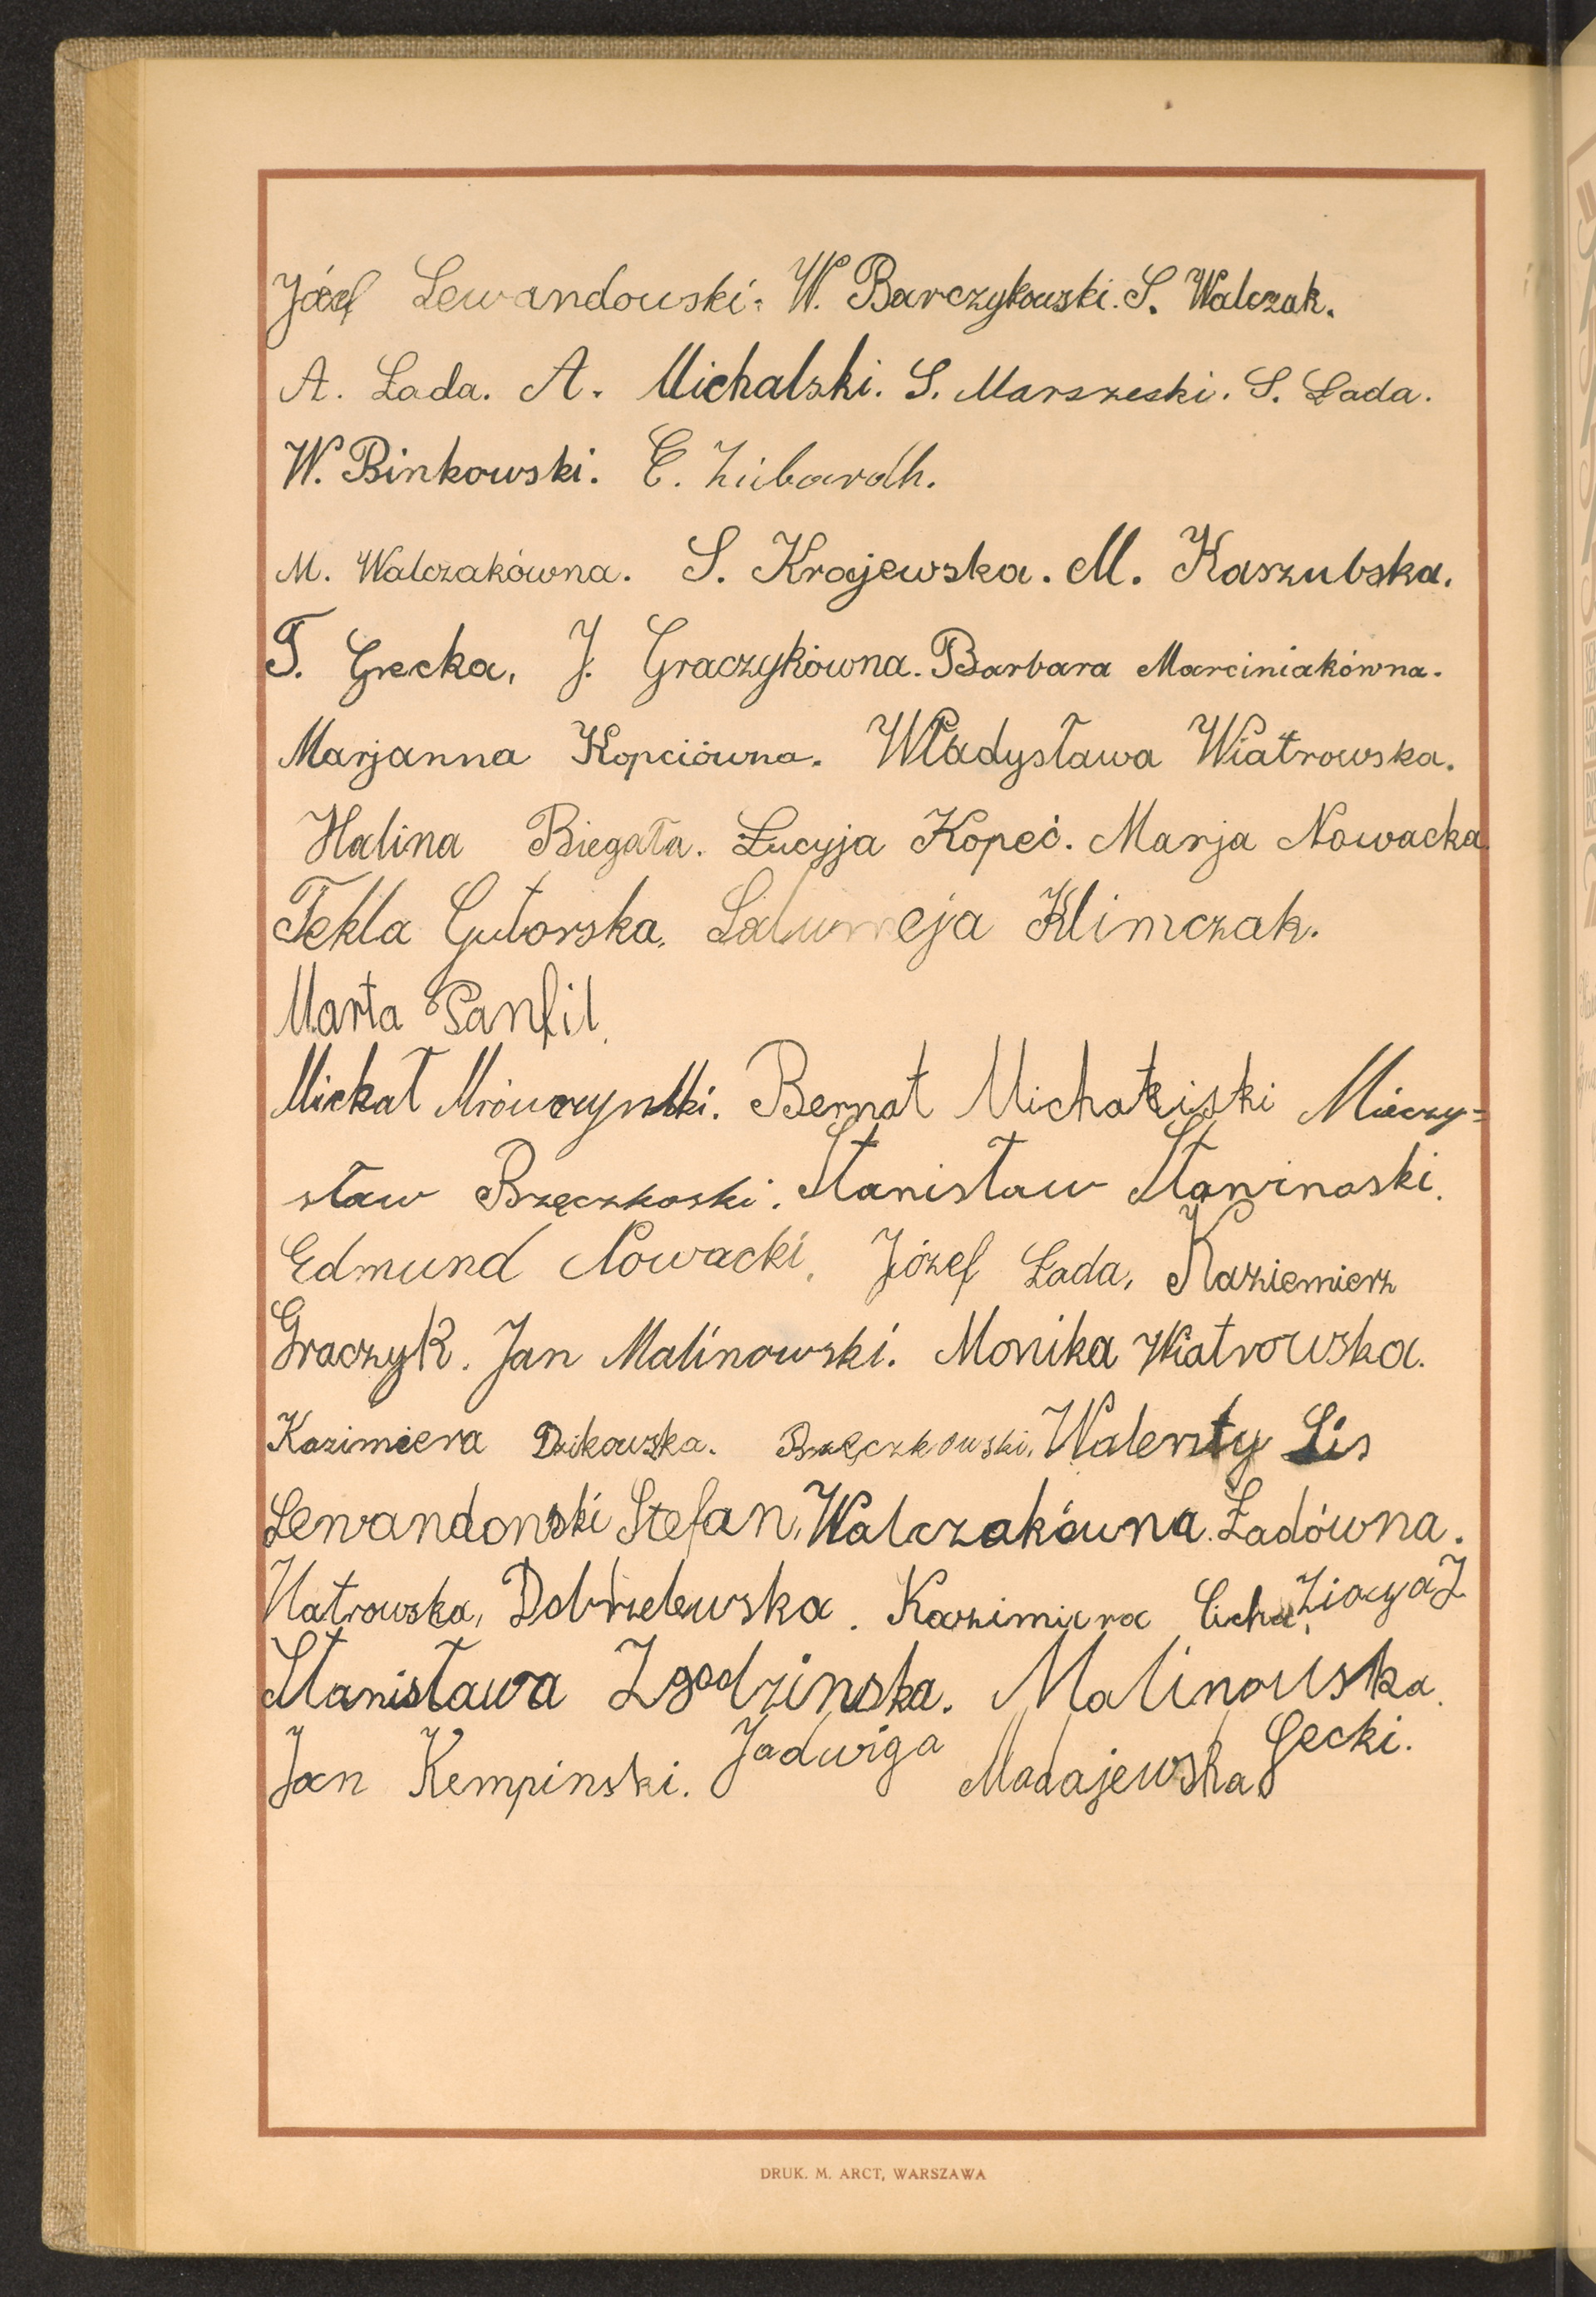 Józef Lewandowski. W. Barczykowski. S. Walczak.
A. Łada. A. Michalski. S. Marszeski. S. Łada.
W. Binkowski. E. Zübardh.
M. Walczakówna. S. Krajewska. M. Kaszubska.
T. Grecka, J. Graczykówna. Barbara Marciniakówna.
Marjanna Kopciówna. Władysława Wiatrowska.
Halina Biegała. Łucyja Kopeć. Marja Nowacka.
Tekla Gutorska. Klimczak.
Marta Panfil.
Michał Bernat Mieczy=
sław Brzęczkoski. Stanisław
Edmund Nowacki, Józef Łada, Kaziemierz
Graczyk. Jan Malinowski. Monika Wiatrowska.
Kazimiera Dzikowska. Brzęczkowski. Walenty Lis
Lewandowski Stefan, Walczakówna. Ładówna.
Dobrzelewska. Kazimiera Cicha,
Stanisława Zgodzinska. Malinowska.
Jan Kempinski. Jadwiga Madajewska Gecki.
DRUK. M. ARCT, WARSZAWA